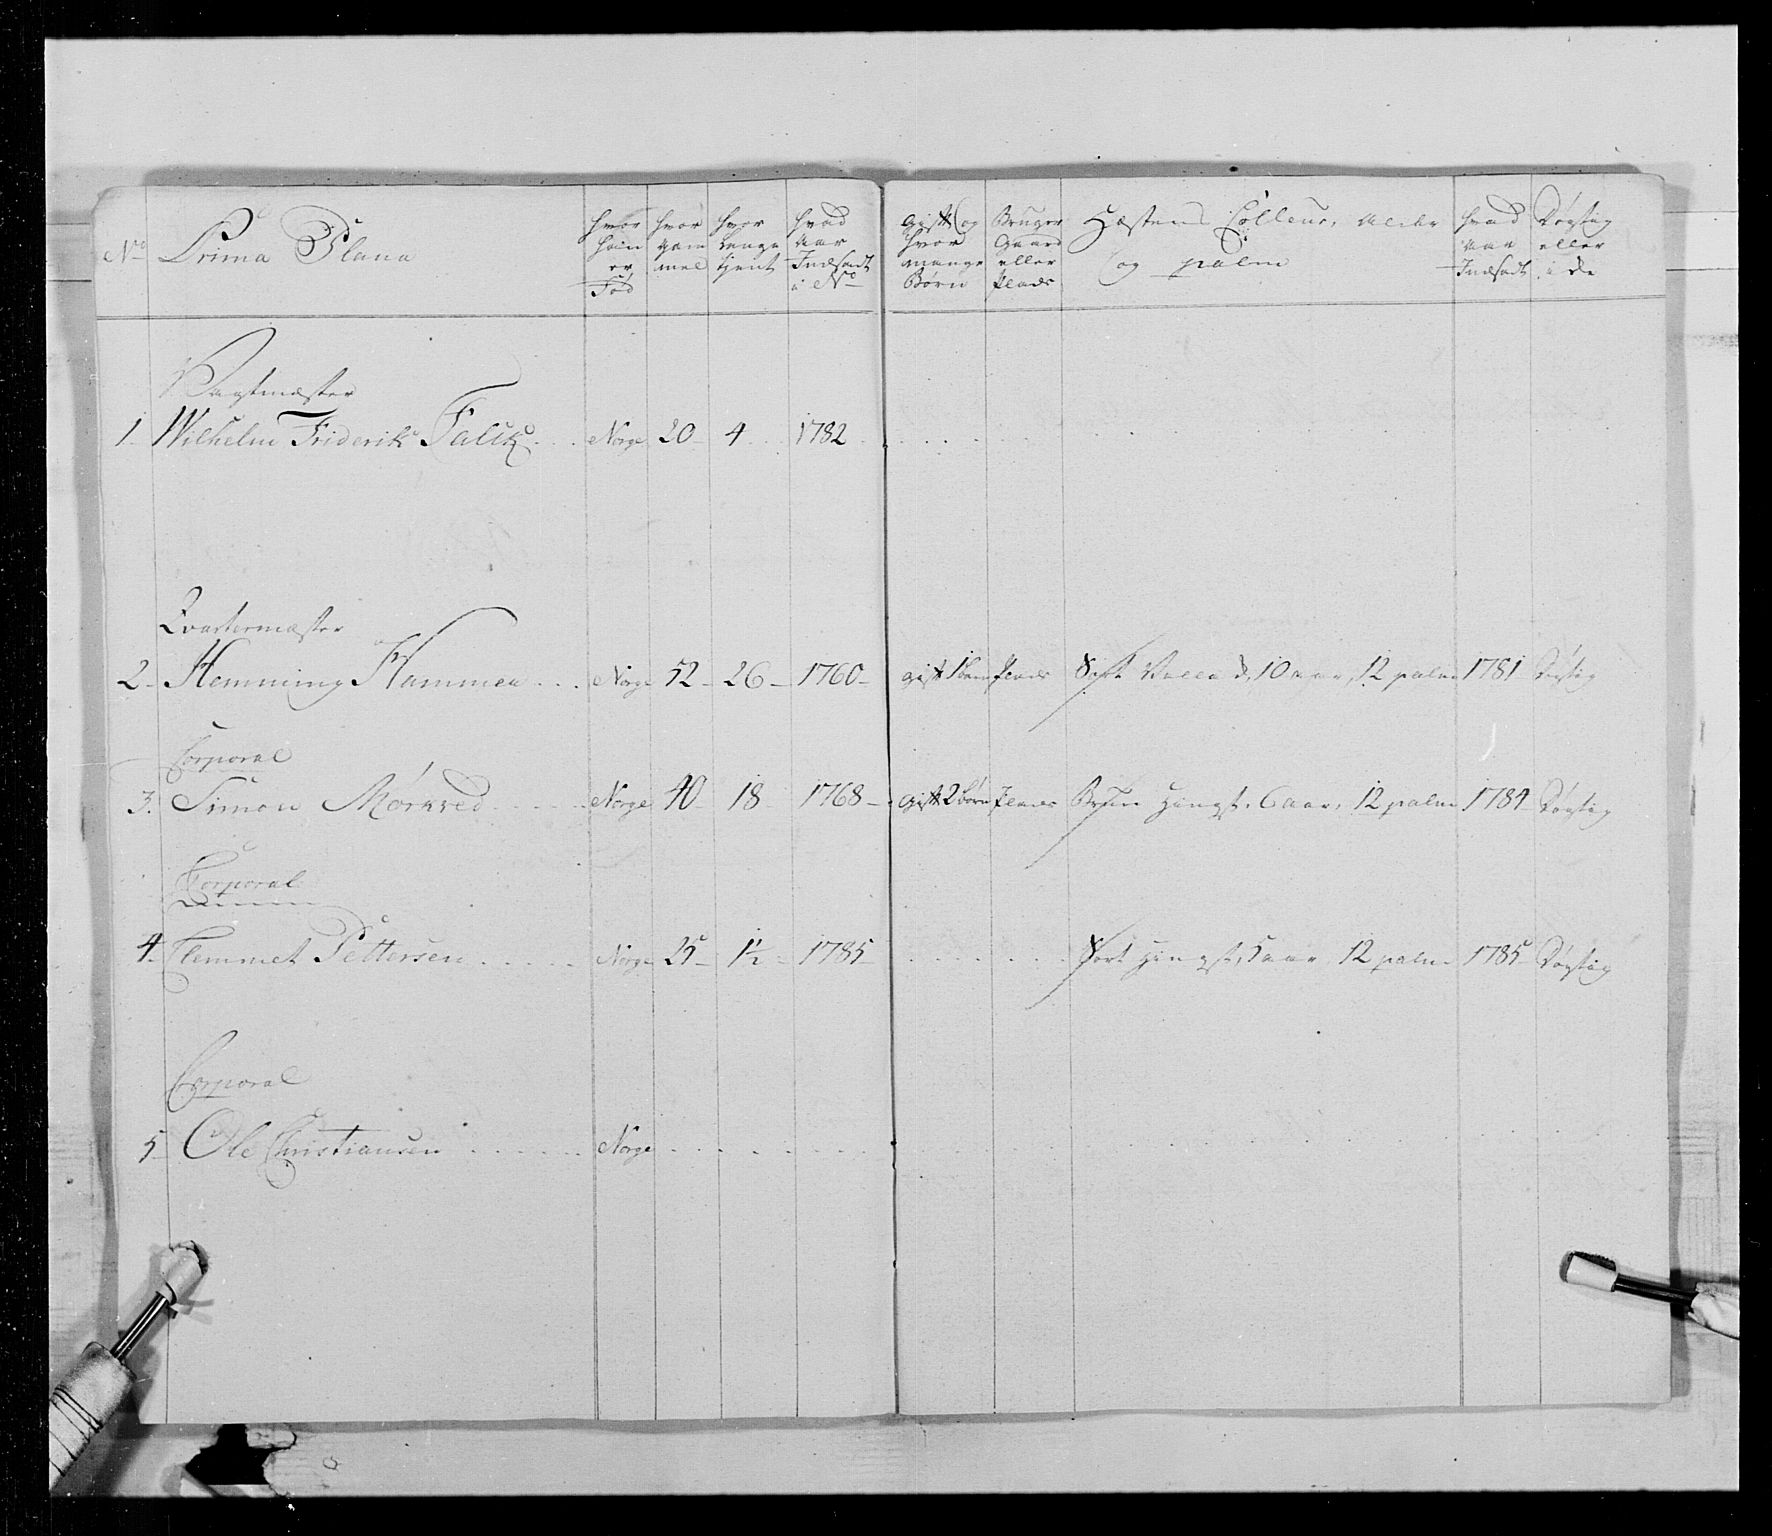 No Prima Plana
hvor hain er Fød
hvor gam mel
hvor lenge tjent
hvad aar Indsadt i No
gift og hvor mange Børn
Bruger Gaard eller Plads
Hæstens Colleur, Alder og palm
hvad aar Indsadt
Døgtig eller i de
Vagtmæster
1. Wilhelm Friderik Falck . . . Norge 20 - 4 . . 1782 . . . . .
Qvartermæster
2 - Hemming Hammen . . . Norge 52 - 26 - 1760 - gift 1 børn Plads Sort 10 aar, 12 palm 1781 Døgtig
Corporal
3. Simon Mørkved . . . . . Norge 40 - 18 1768 - gift 2 børn Plads Brun Hingst, 6 aar, 12 palm 1784 Døgtig
Corporal
4 - Clemmet Pettersen . . . . . Norge 25 - 1½ - 1785 - . . . . . . Sort Hingst, 5 aar 12 palm 1785 - Døgtig
Corporal
5 - Ole Christiansen . . . . . . Norge . . . . . .